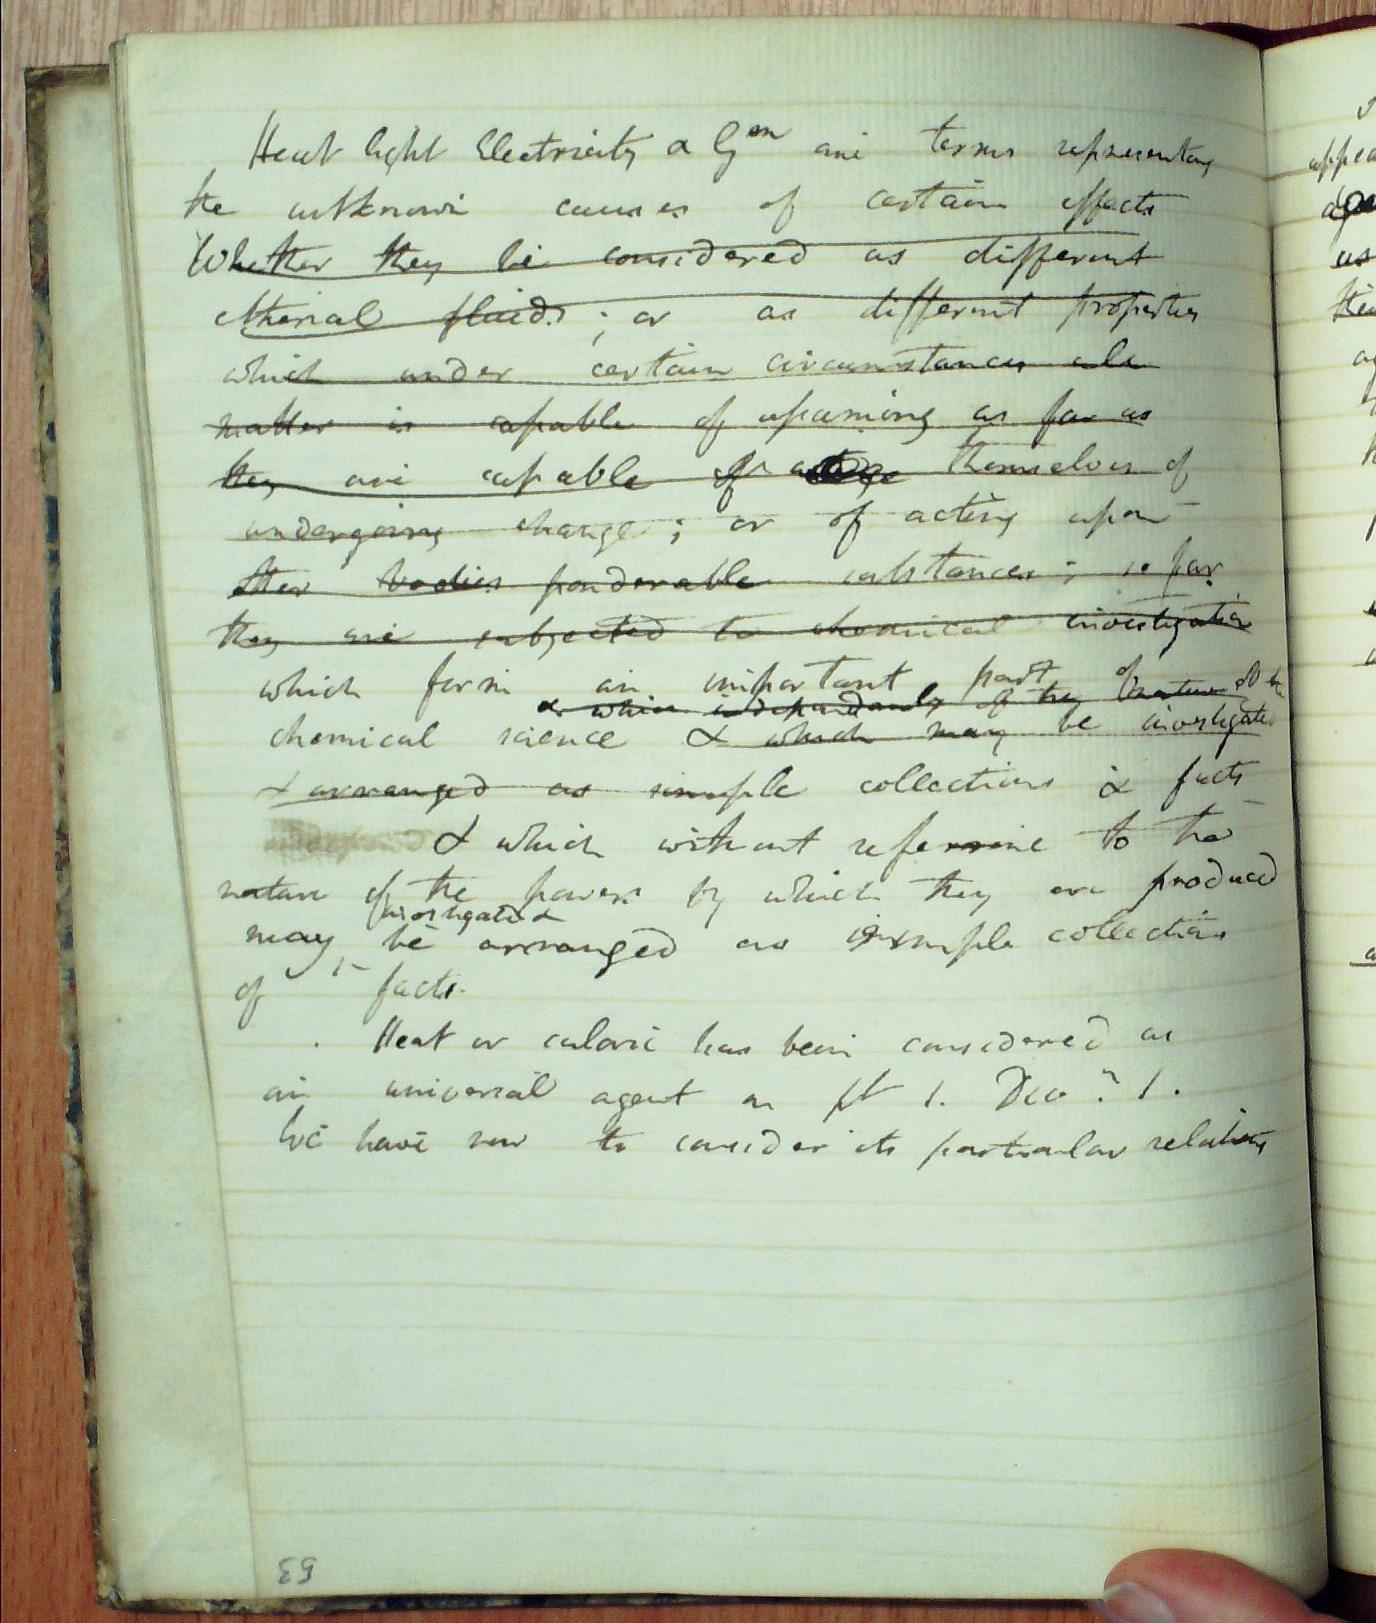 Heat light Electricity & Gm are terms representing
the unknown causes of certain effects
Whether they be considered as different
etherial fluids; or as different properties
which under certain circumstances all
matter is capable of assuming as far as
they are capable of themselves of
undergoing change; or of acting upon
other bodies ponderable substances; so far
they are subjected to chemical investigation
which form an important part of
& which independantly of the nature of the
chemical science & which may be investigated
& arranged as simple collections & facts
& which without reference to the
nature of the powers by which they are produced
investigated &
may be arranged as simple collections
of facts.
Heat or caloric has been considered as
an universal agent in pt 1. Div: 1.
We have now to consider its particular relations
53
appea
as